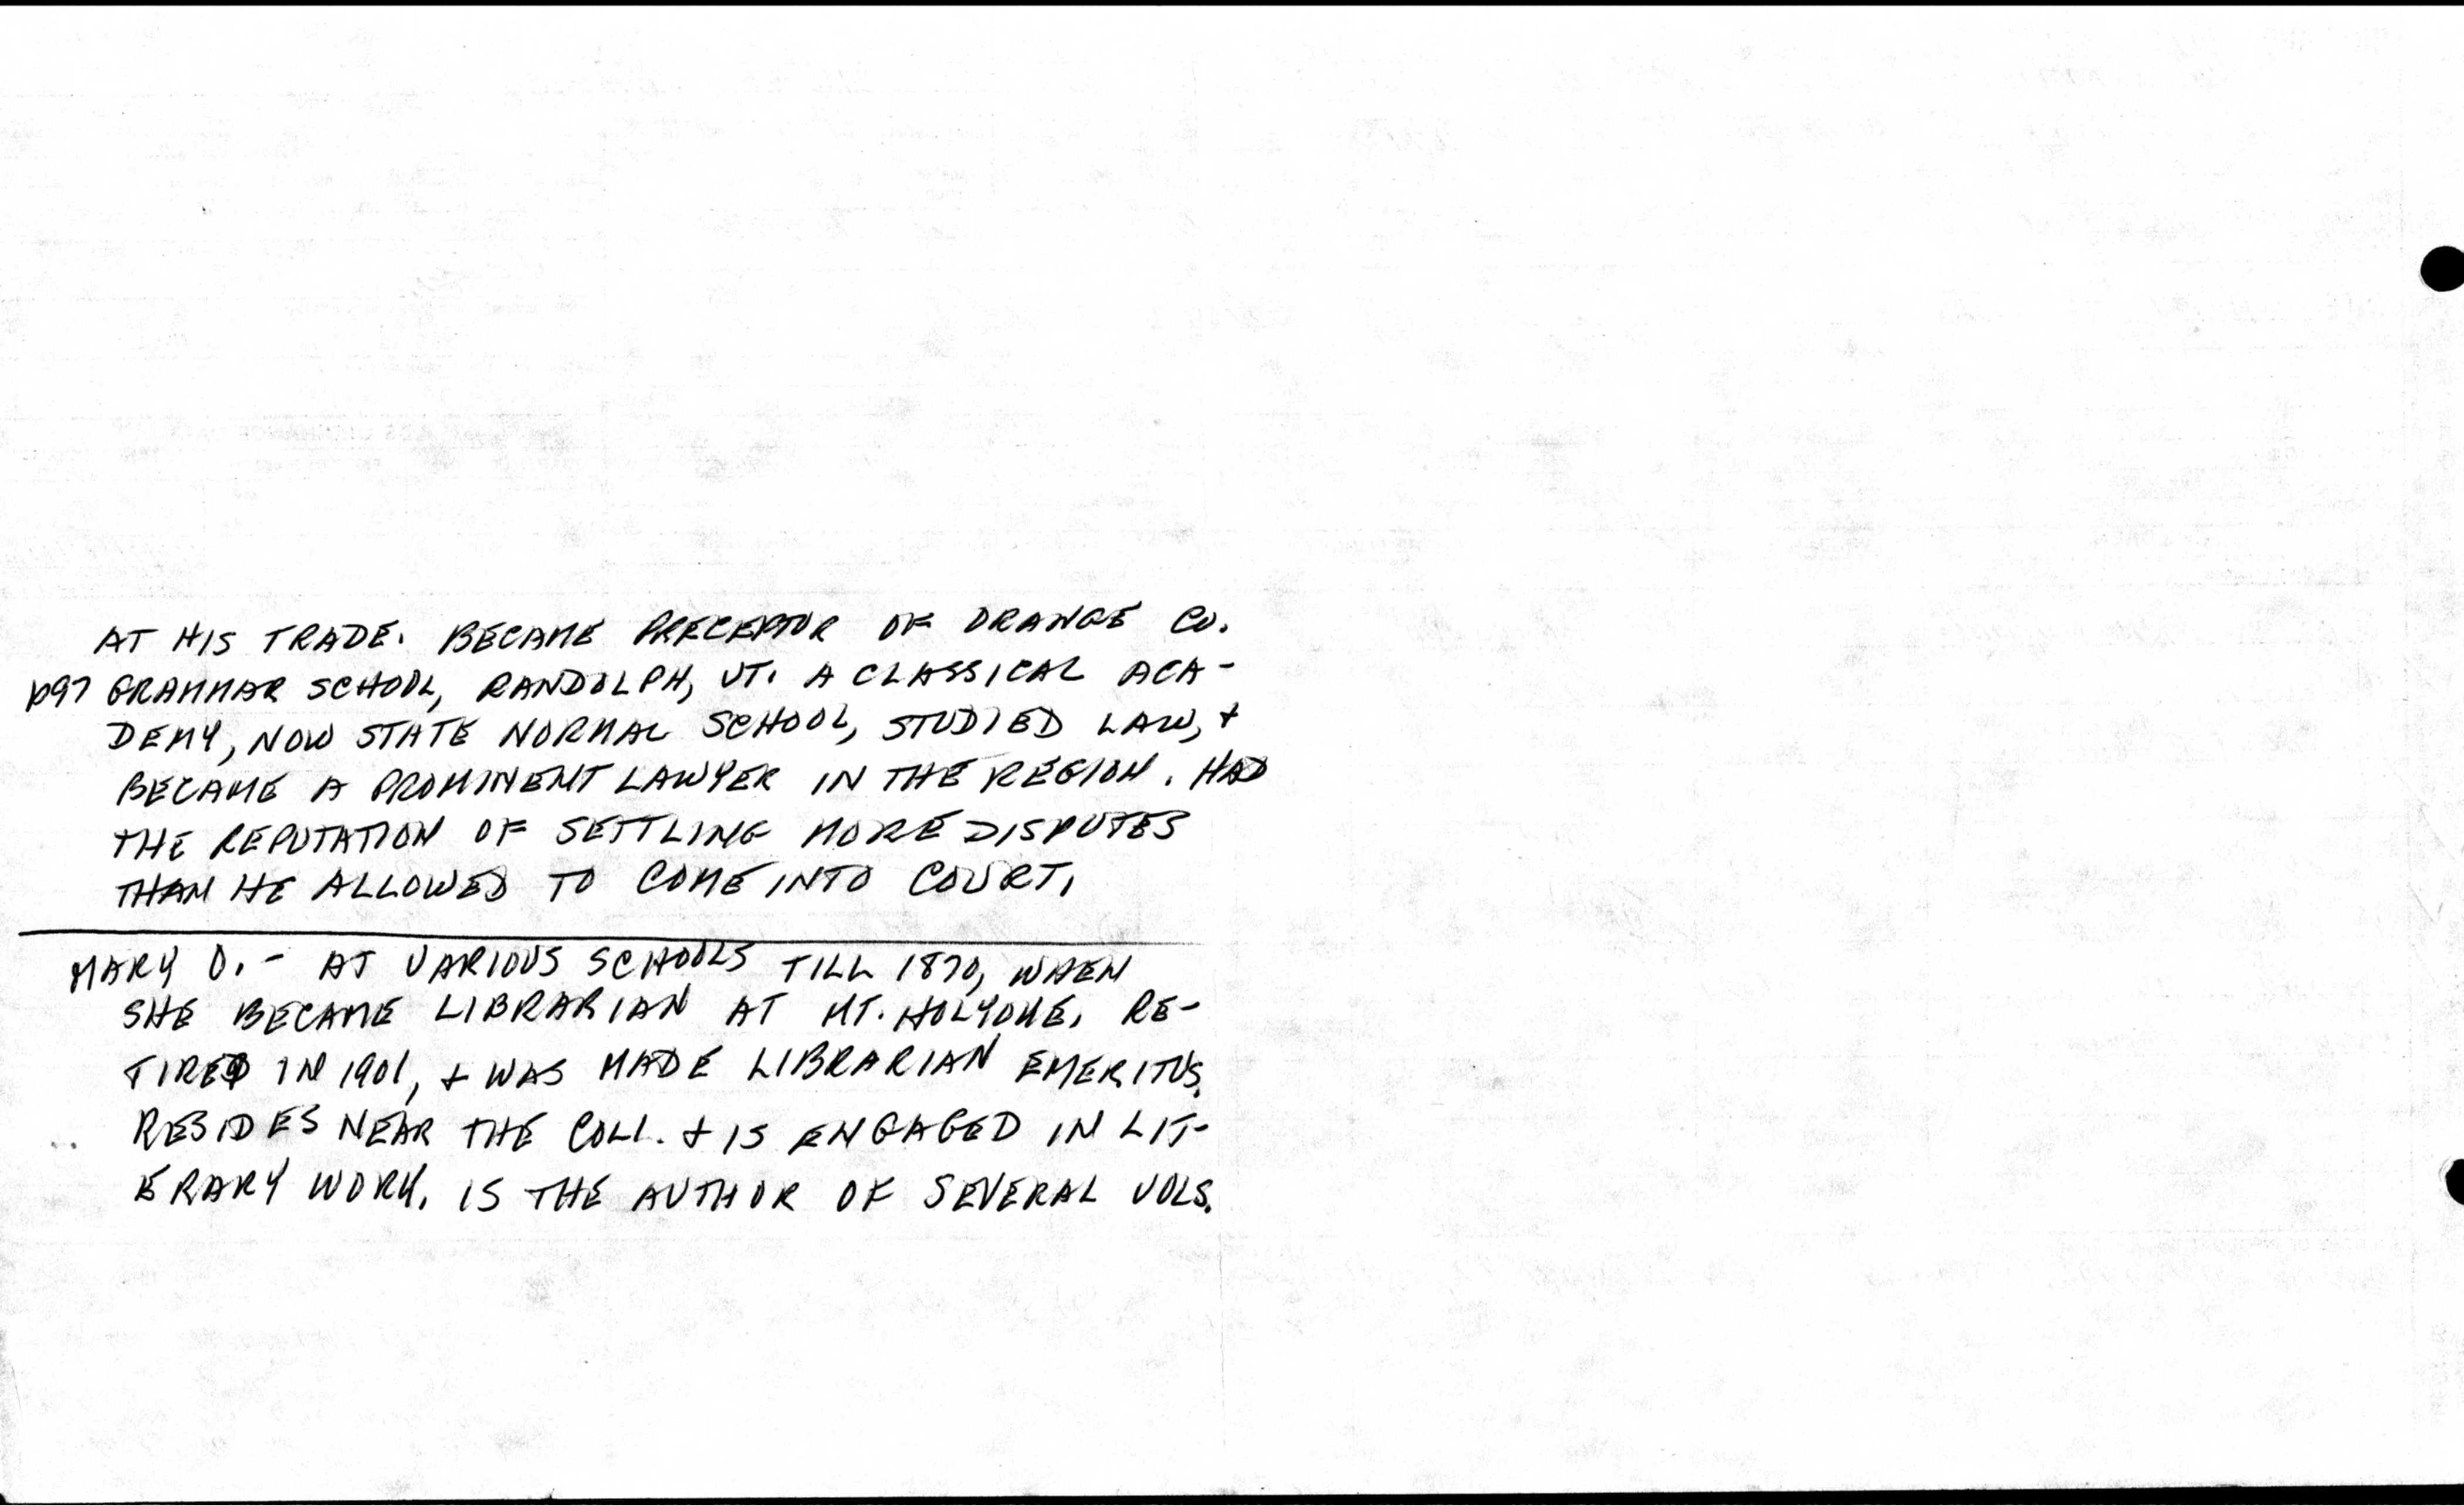 AT HIS TRADE. BECAME PRECEPTOR OF ORANGE CO.
p97 GRAMMAR SCHOOL, RANDOLPH, VT. A CLASSICAL ACA-
DEMY, NOW STATE NORMAL SCHOOL, STUDIED LAW, +
BECAME A PROMINENT LAWYER IN THE REGION. HAD
THE REPUTATION OF SETTLING MORE DISPUTES
THAN HE ALLOWED TO COME INTO COURT.
MARY O. - AT VARIOUS SCHOOLS TILL 1870, WHEN
SHE BECAME LIBRARIAN AT MT. HOLYOKE. RE-
TIRED IN 1901, + WAS MADE LIBRARIAN EMERITUS.
RESIDES NEAR THE COLL. + IS ENGAGED IN LIT-
ERARY WORK. IS THE AUTHOR OF SEVERAL VOLS.